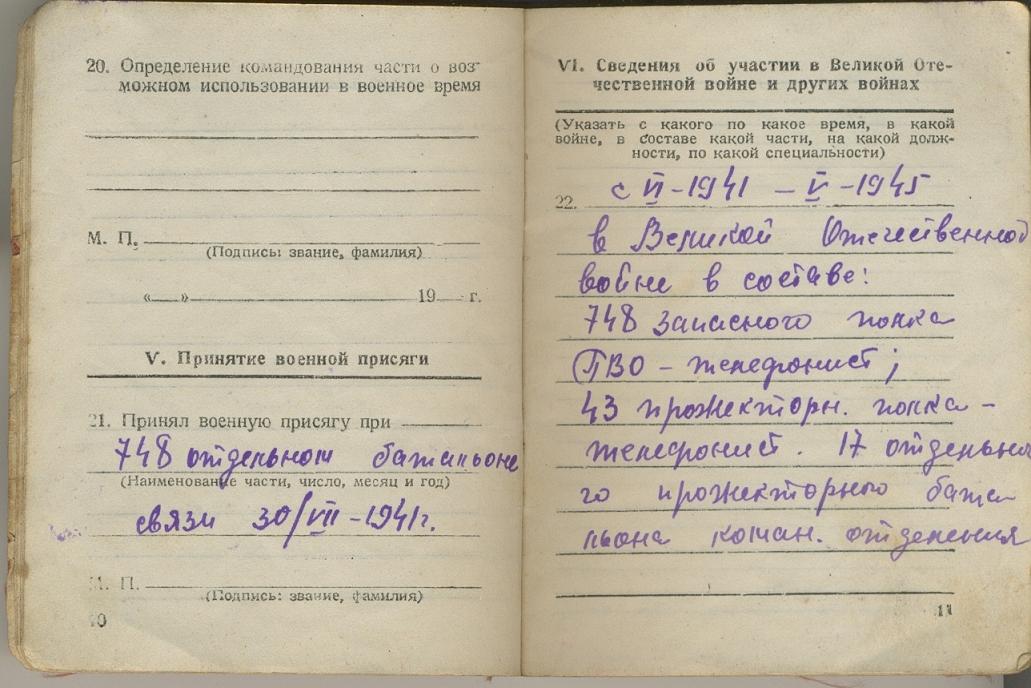 20. Определение командования части о воз-
можном использовании в военное время
М. П.
(Подпись: звание, фамилия)
«__»__ 19__ г.
V. Принятие военной присяги
21. Принял военную присягу при
748 отдельном батальоне
(Наименование части, число, месяц и год)
связи 30/VII-1941г.
М. П.
(Подпись: звание, фамилия)
10
VI. Сведения об участии в Великой Оте-
чественной войне и других войнах
(Указать с какого по какое время, в какой
войне, в составе какой части, на какой долж-
ности, по какой специальности)
22. с VI-1941 - V-1945
в Великой Отечественной
войне в составе:
748 запасного полка
ПВО - телефонист;
43 прожекторн. полка -
телефонист. 17 отдельно
го прожекторного бата
льона коман. отделения
11